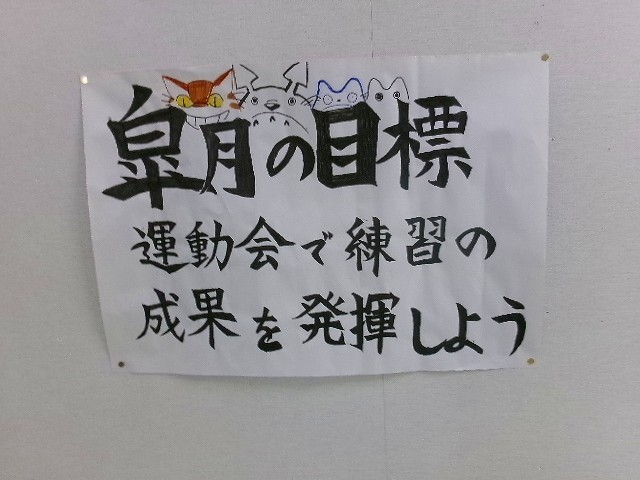 皐月の目標
運動会で練習の
成果を発揮しよう